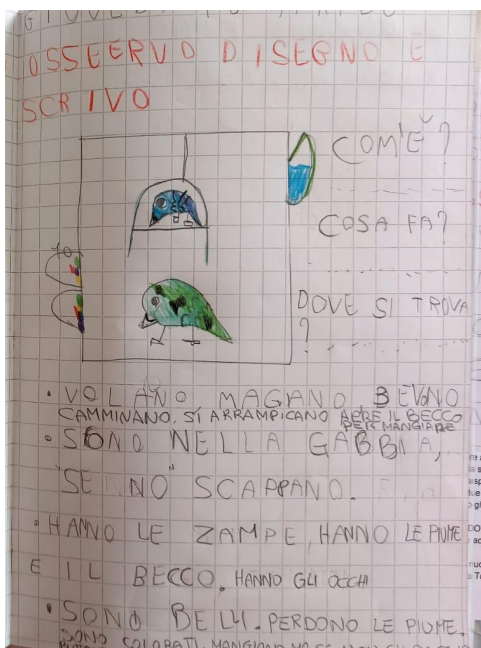 OSSEERVO DISEGNO E
SCRIVO
COM'È?
COSA FA?
DOVE SI TROVA
?
• VOLANO MAGANO, BEVONO
CAMMINANO, SI ARRAMPICANO APRE IL BECCO
PER MANGIARE
• SONO NELLA GABBIA,
"SE NNO" SCAPPANO.
• HANNO LE ZAMPE, HANNO LE PIUME
E IL BECCO, HANNO GLI OCCHI
• SONO BELLI. PERDONO LE PIUME.
SONO COLORATI, MANGIANO